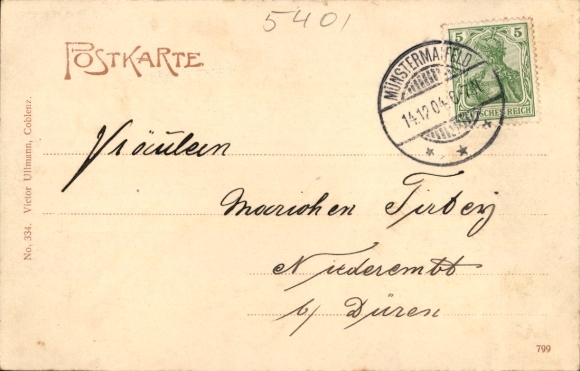 5401
POSTKARTE
5 5
DEUTSCHES REICH
MÜNSTERMAIFELD
14.12.04.
* *
Fräulein
Mariechen
Niederembt
b/ Düren
No. 334. Victor Ullmann, Coblenz.
799